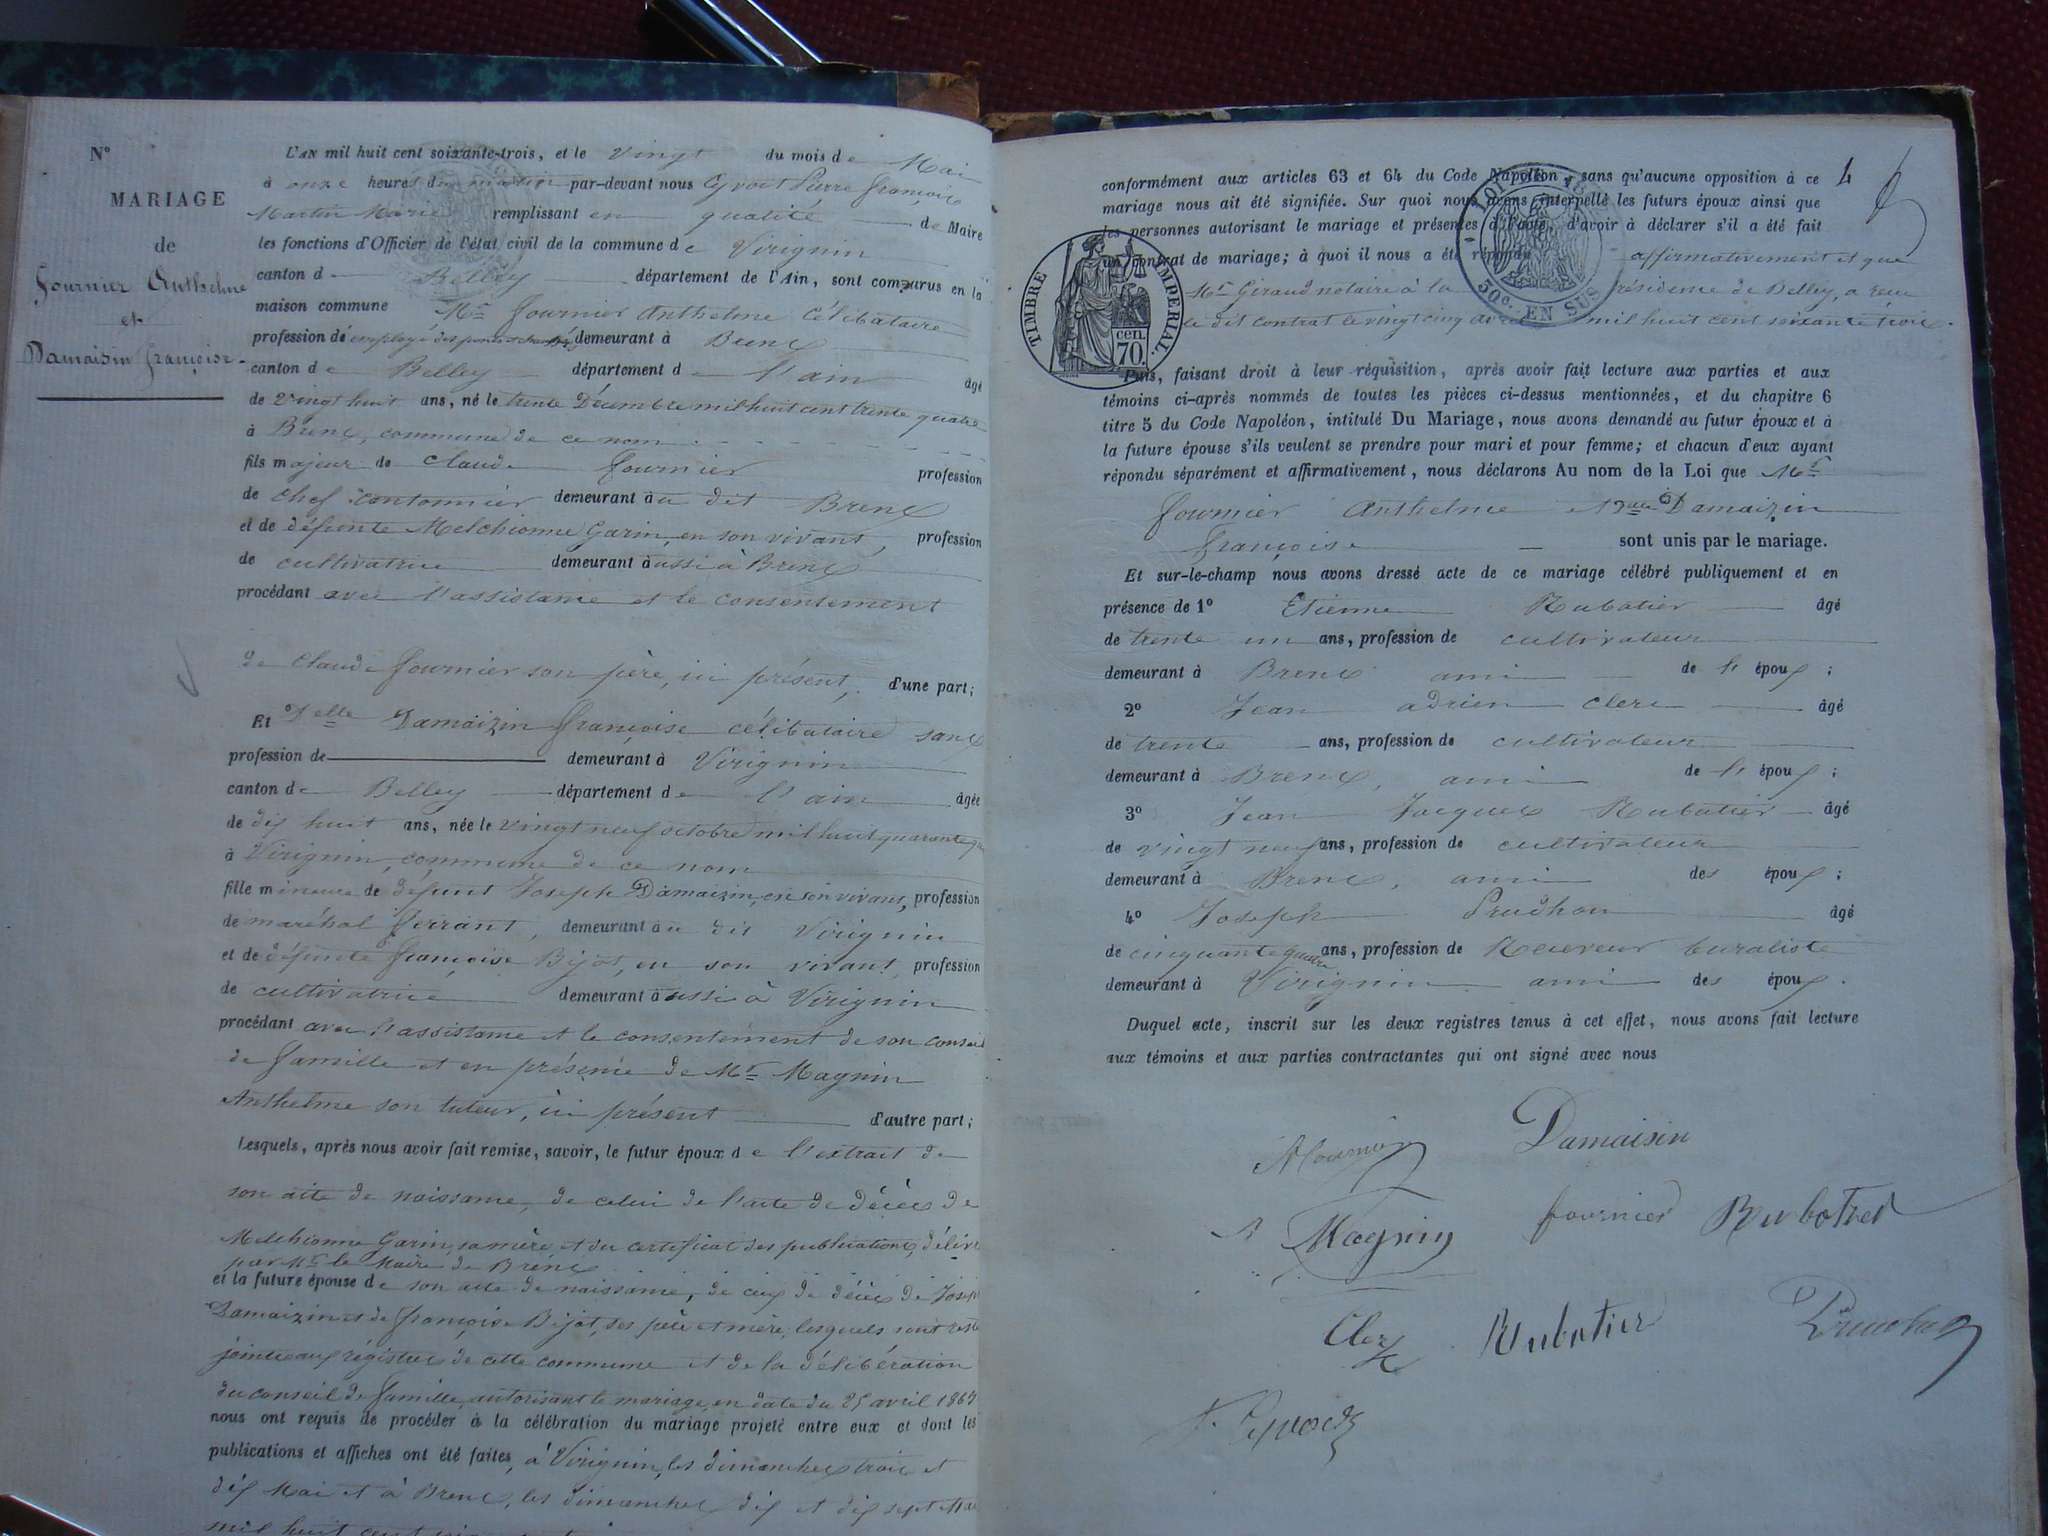 N°
MARIAGE
de
fournier Anthelme
et
Damaisin françoise.
L'AN mil huit cent soixante-trois, et le vingt du mois de Mai
à onze heures du matin par-devant nous Cyvoct Pierre françois
Martin Marie remplissant en qualité de Maire
les fonctions d'Officier de l'état civil de la commune de Virignin
canton d Belley département de l'Ain, sont comparus en la
maison commune Mr fournier Anthelme célibataire
profession de employé des ponts et chaussées demeurant à Brens
canton de Belley département de l'ain âgé
de vingt huit ans, né le trente Décembre mil huit cent trente quatre
à Brens, commune de ce nom
fils majeur de Claude fournier profession
de chef cantonnier demeurant au dit Brens
et de défunte Melchionne Garin, en son vivant, profession
de cultivatrice demeurant aussi à Brens
procédant avec l'assistance et le consentement
de Claude fournier son père, ici présent, d'une part;
Et Delle Damaizin françoise célibataire sans
profession de demeurant à Virignin
canton de Belley département de l'ain âgée
de dix huit ans, née le vingt neuf octobre mil huit quarante
à Virignin, commune de ce nom
fille mineure de défunt Joseph Damaizin, en son vivant, profession
de maréchal ferrant, demeurant au dit Virignin
et de défunte françoise Bijot, en son vivant, profession
de cultivatrice demeurant aussi à Virignin
procédant avec l'assistance et le consentement de son conseil
de famille et en présence de Mr Magnin
Anthelme son tuteur, ici présent d'autre part;
Lesquels, après nous avoir fait remise, savoir, le futur époux de l'extrait de
son acte de naissance, de celui de l'acte de décès de
Melchionne Garin, sa mère, et du certificat des publications, délivré
par Mr le Maire de Brens
et la future épouse de son acte de naissance, de ceux de décès de Joseph
Damaizin et de françoise Bijot, ses père et mère, lesquels sont restés
joints aux régistres de cette commune et de la délibération
du conseil de famille, autorisant le mariage, en date du 25 avril 1863
nous ont requis de procéder à la célébration du mariage projeté entre eux et dont les
publications et affiches ont été faites, à Virignin, les dimanches trois et
dix Mai et à Brens, les dimanches dix et dix sept Mai
mil huit cent
4
conformément aux articles 63 et 64 du Code Napoléon, sans qu'aucune opposition à ce
mariage nous ait été signifiée. Sur quoi nous avons interpellé les futurs époux ainsi que
les personnes autorisant le mariage et présentes à l'acte, d'avoir à déclarer s'il a été fait
un contrat de mariage; à quoi il nous a été répondu affirmativement et que
Mr Giraud notaire à la résidence de Belley, a reçu
le dit contrat le vingt cinq avril mil huit cent soixante trois.
TIMBRE IMPERIAL.
cen. 70.
50c. EN SUS
Puis, faisant droit à leur réquisition, après avoir fait lecture aux parties et aux
témoins ci-après nommés de toutes les pièces ci-dessus mentionnées, et du chapitre 6
titre 5 du Code Napoléon, intitulé Du Mariage, nous avons demandé au futur époux et à
la future épouse s'ils veulent se prendre pour mari et pour femme; et chacun d'eux ayant
répondu séparément et affirmativement, nous déclarons Au nom de la Loi que Mr
fournier Anthelme et Delle Damaizin
françoise sont unis par le mariage.
Et sur-le-champ nous avons dressé acte de ce mariage célébré publiquement et en
présence de 1° Etienne Rubatier âgé
de trente un ans, profession de cultivateur
demeurant à Brens ami de l'époux;
2° Jean adrien Clerc âgé
de trente ans, profession de cultivateur
demeurant à Brens, ami de l'époux;
3° Jean Jacques Rubatier âgé
de vingt neuf ans, profession de cultivateur
demeurant à Brens, ami des époux;
4° Joseph Prudhon âgé
de cinquante quatre ans, profession de Receveur buraliste
demeurant à Virignin ami des époux.
Duquel acte, inscrit sur les deux registres tenus à cet effet, nous avons fait lecture
aux témoins et aux parties contractantes qui ont signé avec nous
Damaisin
Magnin
fournier
Clerc
Rubatier